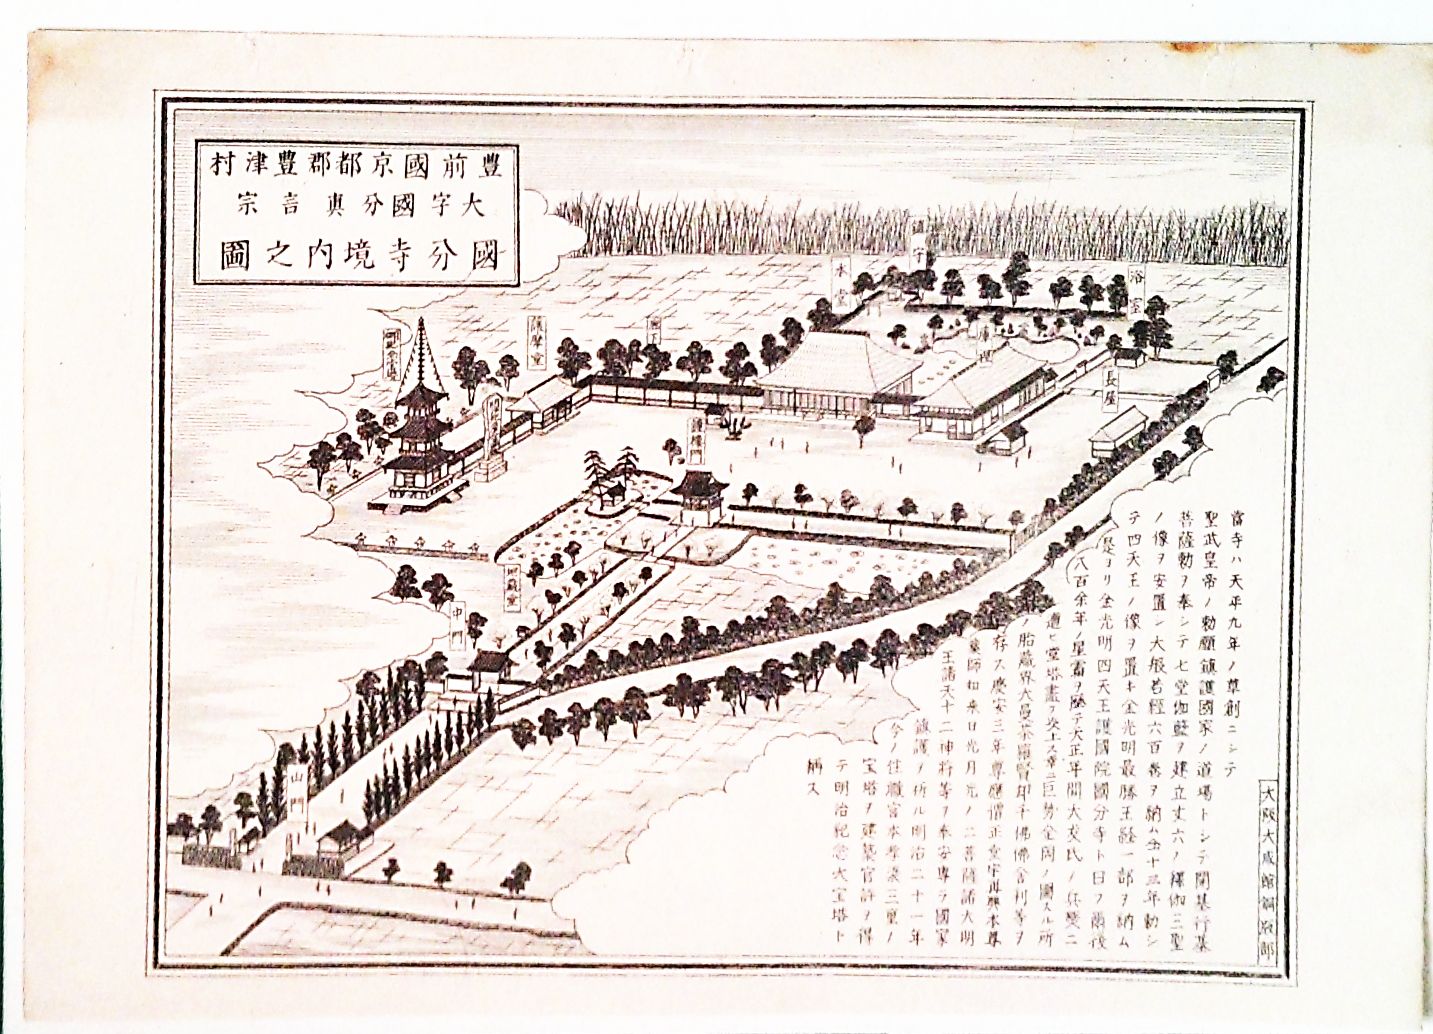 豊前國京都郡豊津村
大字國分眞言宗
國分寺境内之圖
護摩堂
本堂
鎮守
浴室
庫裡
長屋
鐘樓門
地蔵堂
中門
山門
當寺ハ天平九年ノ草創ニシテ
聖武皇帝ノ勅願鎮護國家ノ道場トシテ開基行基
菩薩勅ヲ奉シテ七堂伽藍ヲ建立丈六ノ釋伽三聖
ノ像ヲ安置シ大般若經六百巻ヲ納ム仝十三年勅シ
テ四天王ノ像ヲ置キ金光明最勝王経一部ヲ納ム
是ヨリ金光明四天王護國院國分寺ト曰フ爾後
八百余年ノ星霜ヲ歴テ天正年間大友氏ノ兵燹ニ
遭ヒ堂塔盡ク灰土ス幸ニ巨勢金岡ノ圖スル所
ノ胎藏界大曼荼羅賢却千佛佛舎利等ヲ
存ス慶安三年専應僧正堂宇再興本尊
薬師如来日光月光ノ二菩薩諸大明
王諸天十二神将等ヲ奉安専ラ國家
鎮護ヲ祈ル明治二十一年
今ノ住職宮本孝漠三重ノ
宝塔ヲ建築官許ヲ得
テ明治紀念大宝塔ト
稱ス
大阪大成館銅版部